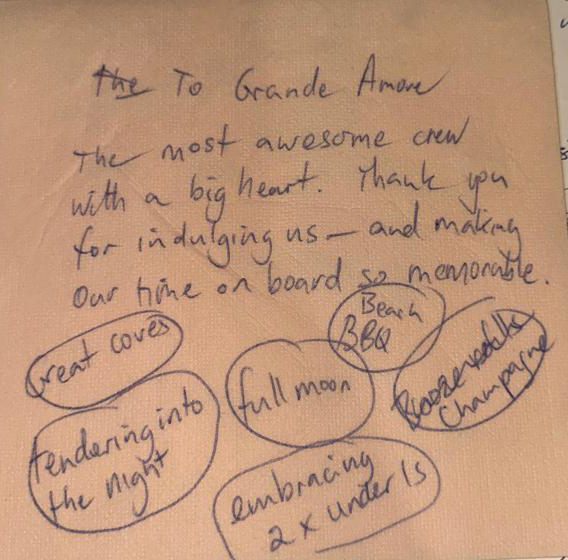 The To Grande Amore
The most awesome crew
with a big heart. Thank you
for indulging us – and making
our time on board so memorable.
Great coves
Beach
BBQ
full moon
Champagne
tendering into
the night
embracing
2 x under 1s